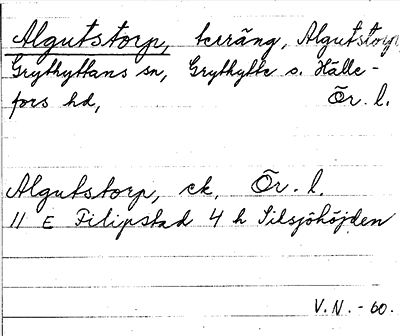 Algutstorp, terräng, Algutstorp
Grythyttans sn, Grythytte o. Hälle-
fors hd, Ör. l.
Algutstorp, ek. Ör. l.
11 E Filipstad 4 h Silsjöhöjden
V.N. - 60.